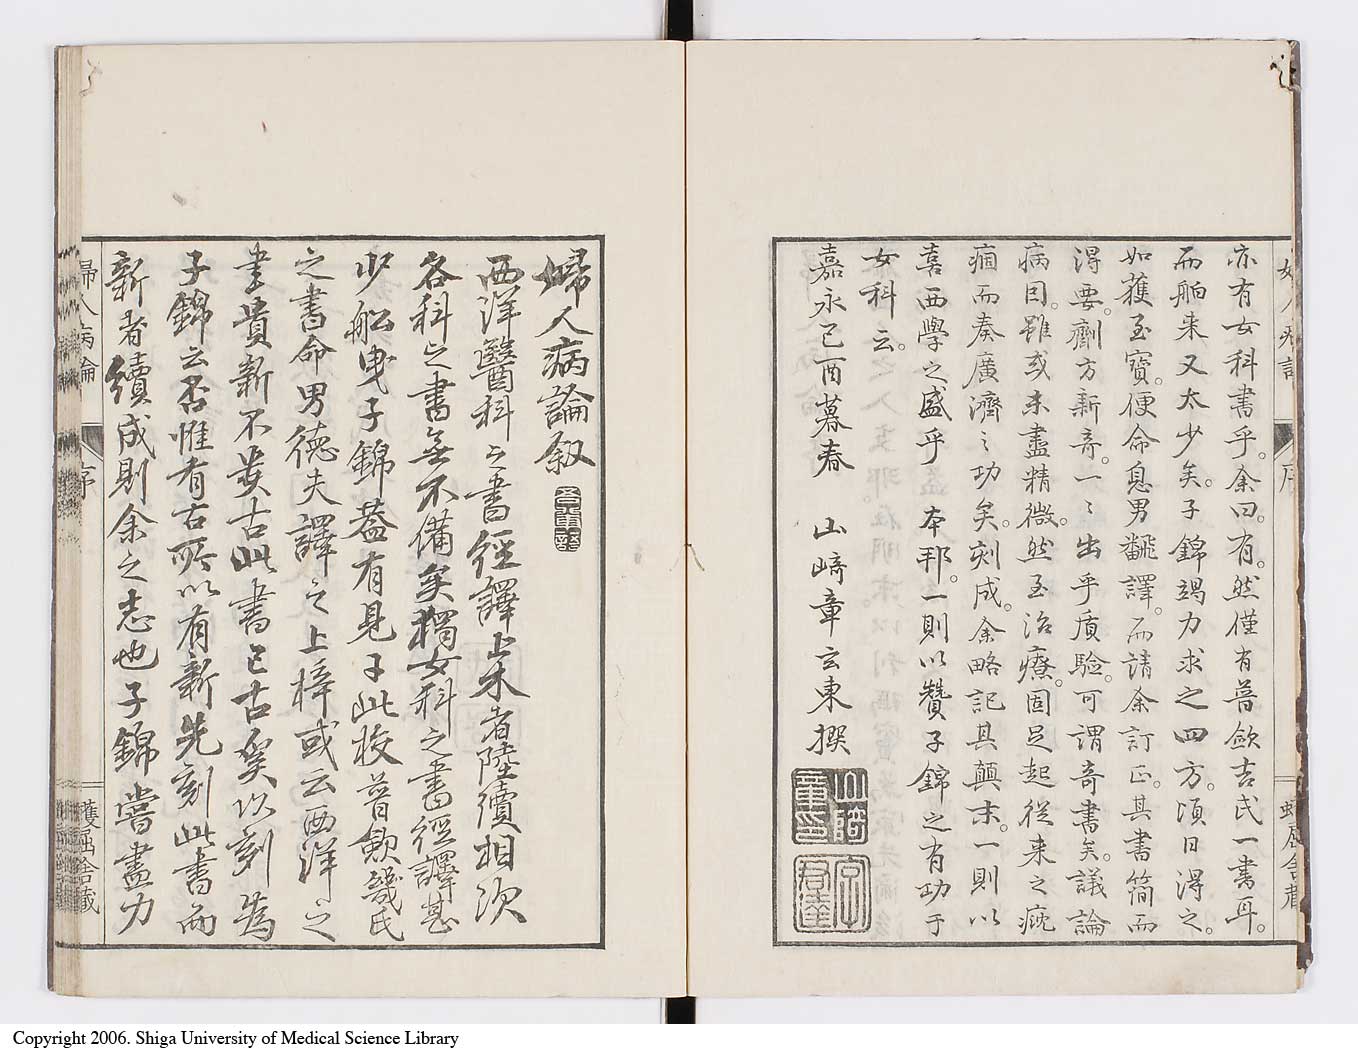 亦有女科書乎。余曰。有。然僅有普歛吉氏一書耳。
而舶来又太少矣。子錦竭力求之四方。頃日得之。
如獲至寶。便命息男飜譯。而請余訂正。其書簡而
得要。劑方新奇。一〻出乎質驗。可謂奇書矣。議論
病因。雖或未盡精微。然至治療。固足起從来之癈
痼而奏廣濟之功矣。刻成。余略記其顛末。一則以
喜西學之盛乎本邦。一則以贊子錦之有功于
女科云。
嘉永己酉暮春　山﨑章玄東撰
婦人病論叙
西洋醫科之書經譯上木者陸續相次
各科之書無不備矣獨女科之書經譯甚
少舩曳子錦葢有見于此挍普歛幾氏
之書命男德夫譯之上梓或云西洋之
書貴新不貴古此書已古矣以刻為
子錦云否惟有古所以有新先刻此書而
新者續成則余之志也子錦嘗盡力
婦人病論
序
蠖屈舎蔵
Copyright 2006. Shiga University of Medical Science Library